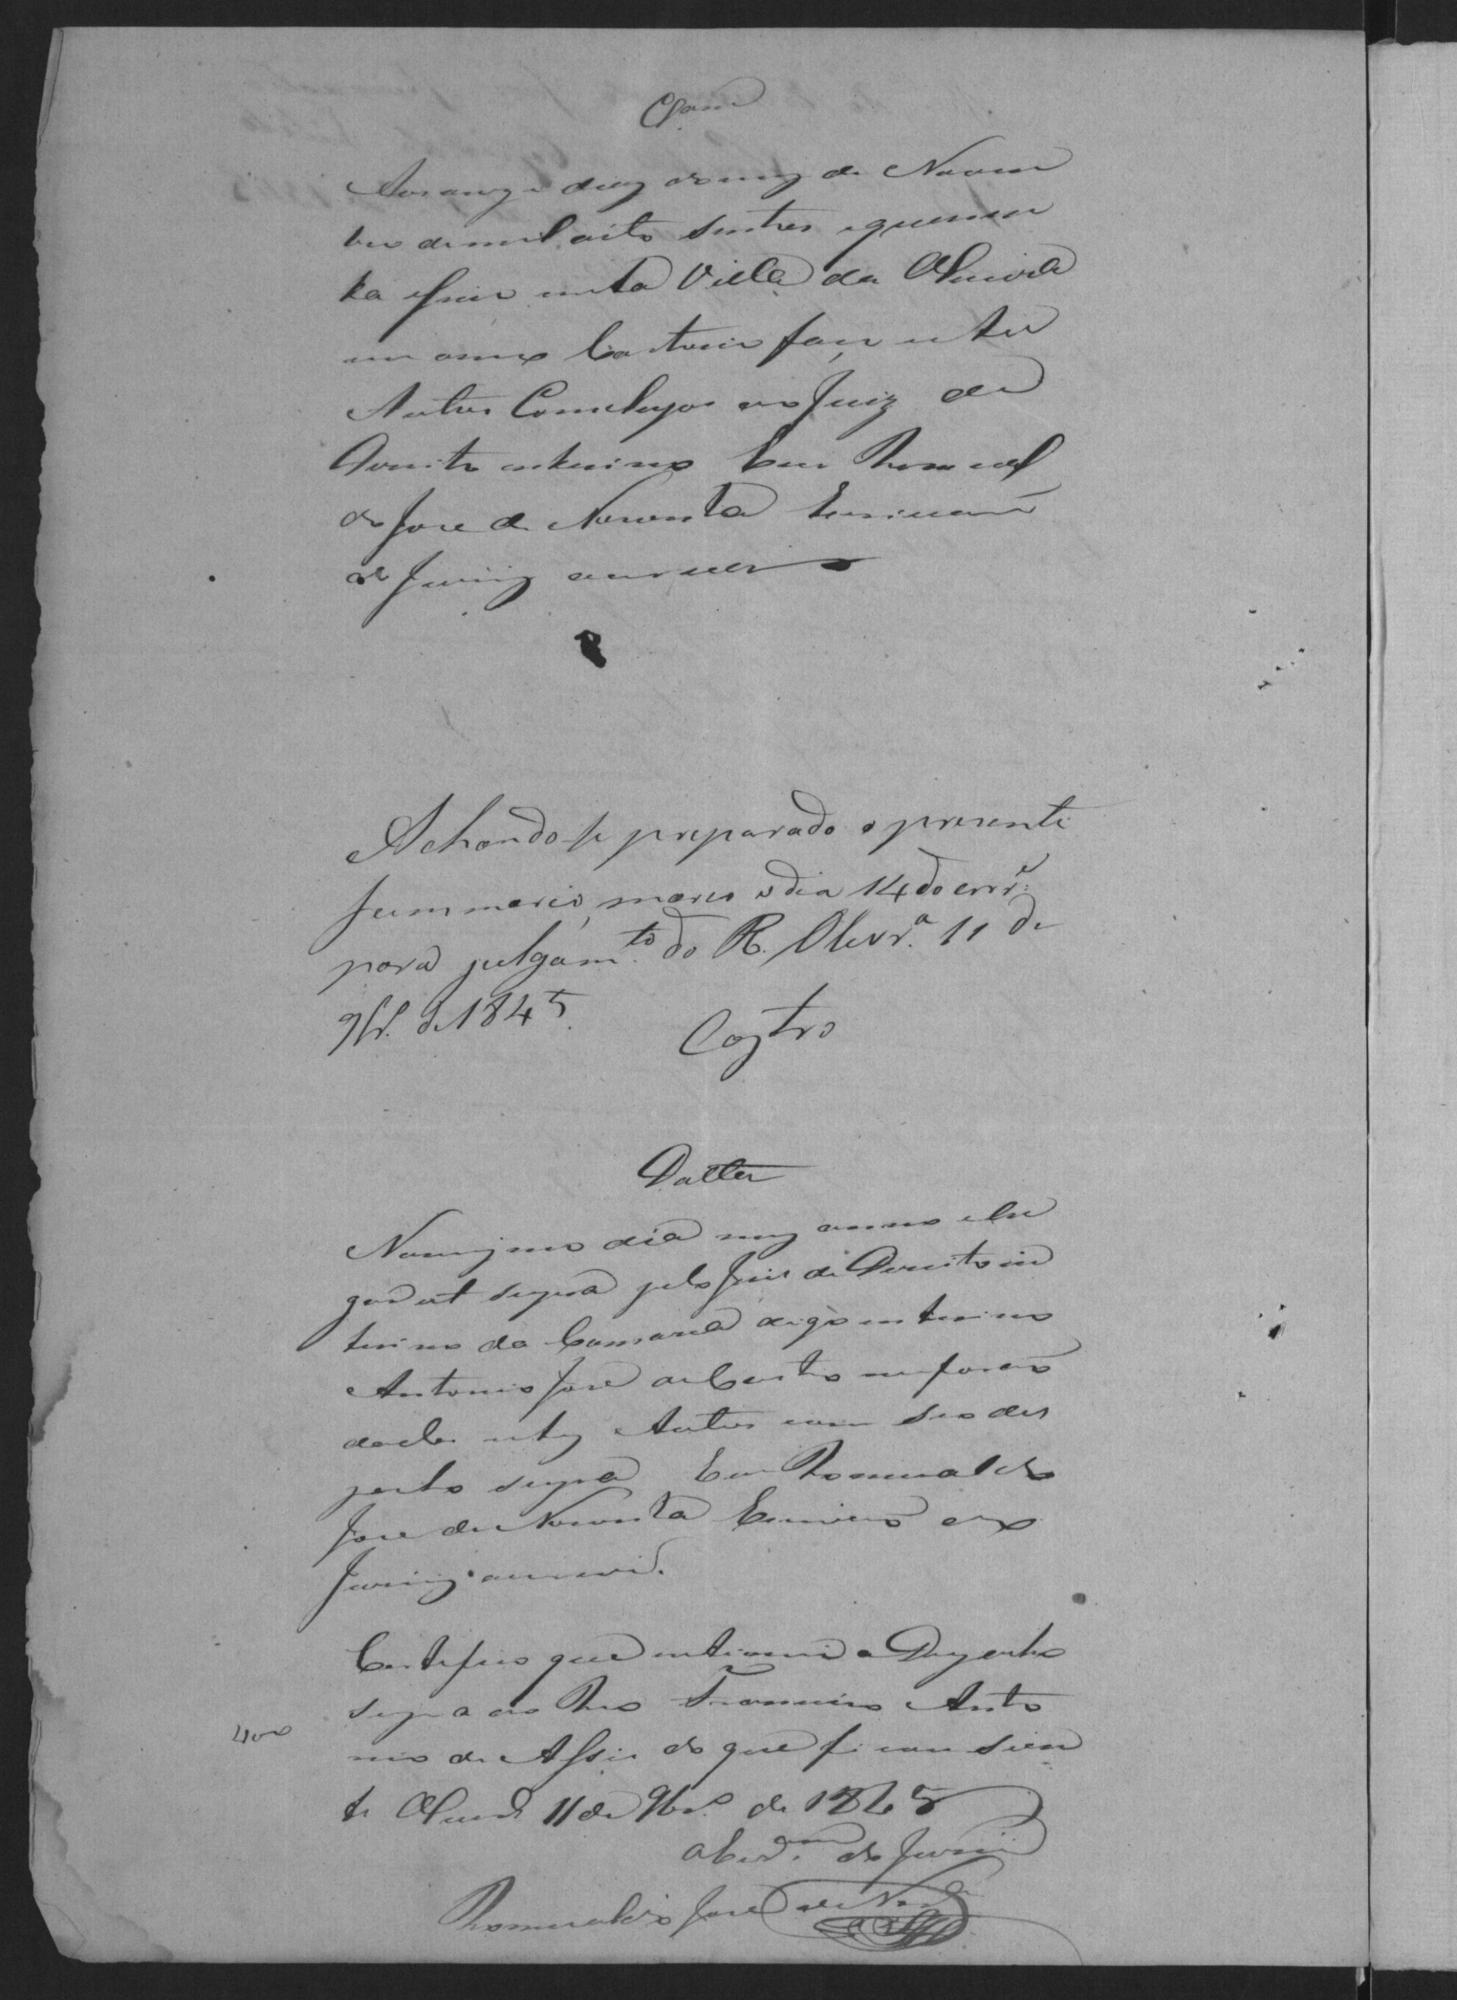 Clsam
Aos onze dias do mez de Novem
bro de mil oito sentos e quaren
ta e sinco nesta Villa da Oliveira
em o meo Cartorio faço estes
Autos Concluzos ao Juiz de
Direito enterino Eu Romual
do Jose de Noronha Escrivam
do Jury escrevi
Achando se preparado o presente
summario, marco o dia 14 do corr.e
para julgam.to do R. Oliv.ra 11 de
9br. de 1845.
Castro
Datta
No mesmo dia mez anno e lu
gar ut supra pelo Juis de Direito in
terino da Comarca digo enterino
Antonio Jose de Castro me forão
dados estes Autos com seo des
pacho supra Eu Romualdo
Jose de Noronha Escrivão do
Jury escrevi.
Certifico que intimei o Despacho
supra ao Reo Francisco Anto
nio de Assis do que ficou sien
te Olivr.a 11 de 9br.o de 1845
400
o Escr.am do Jury
Romualdo Jose de Nor.a